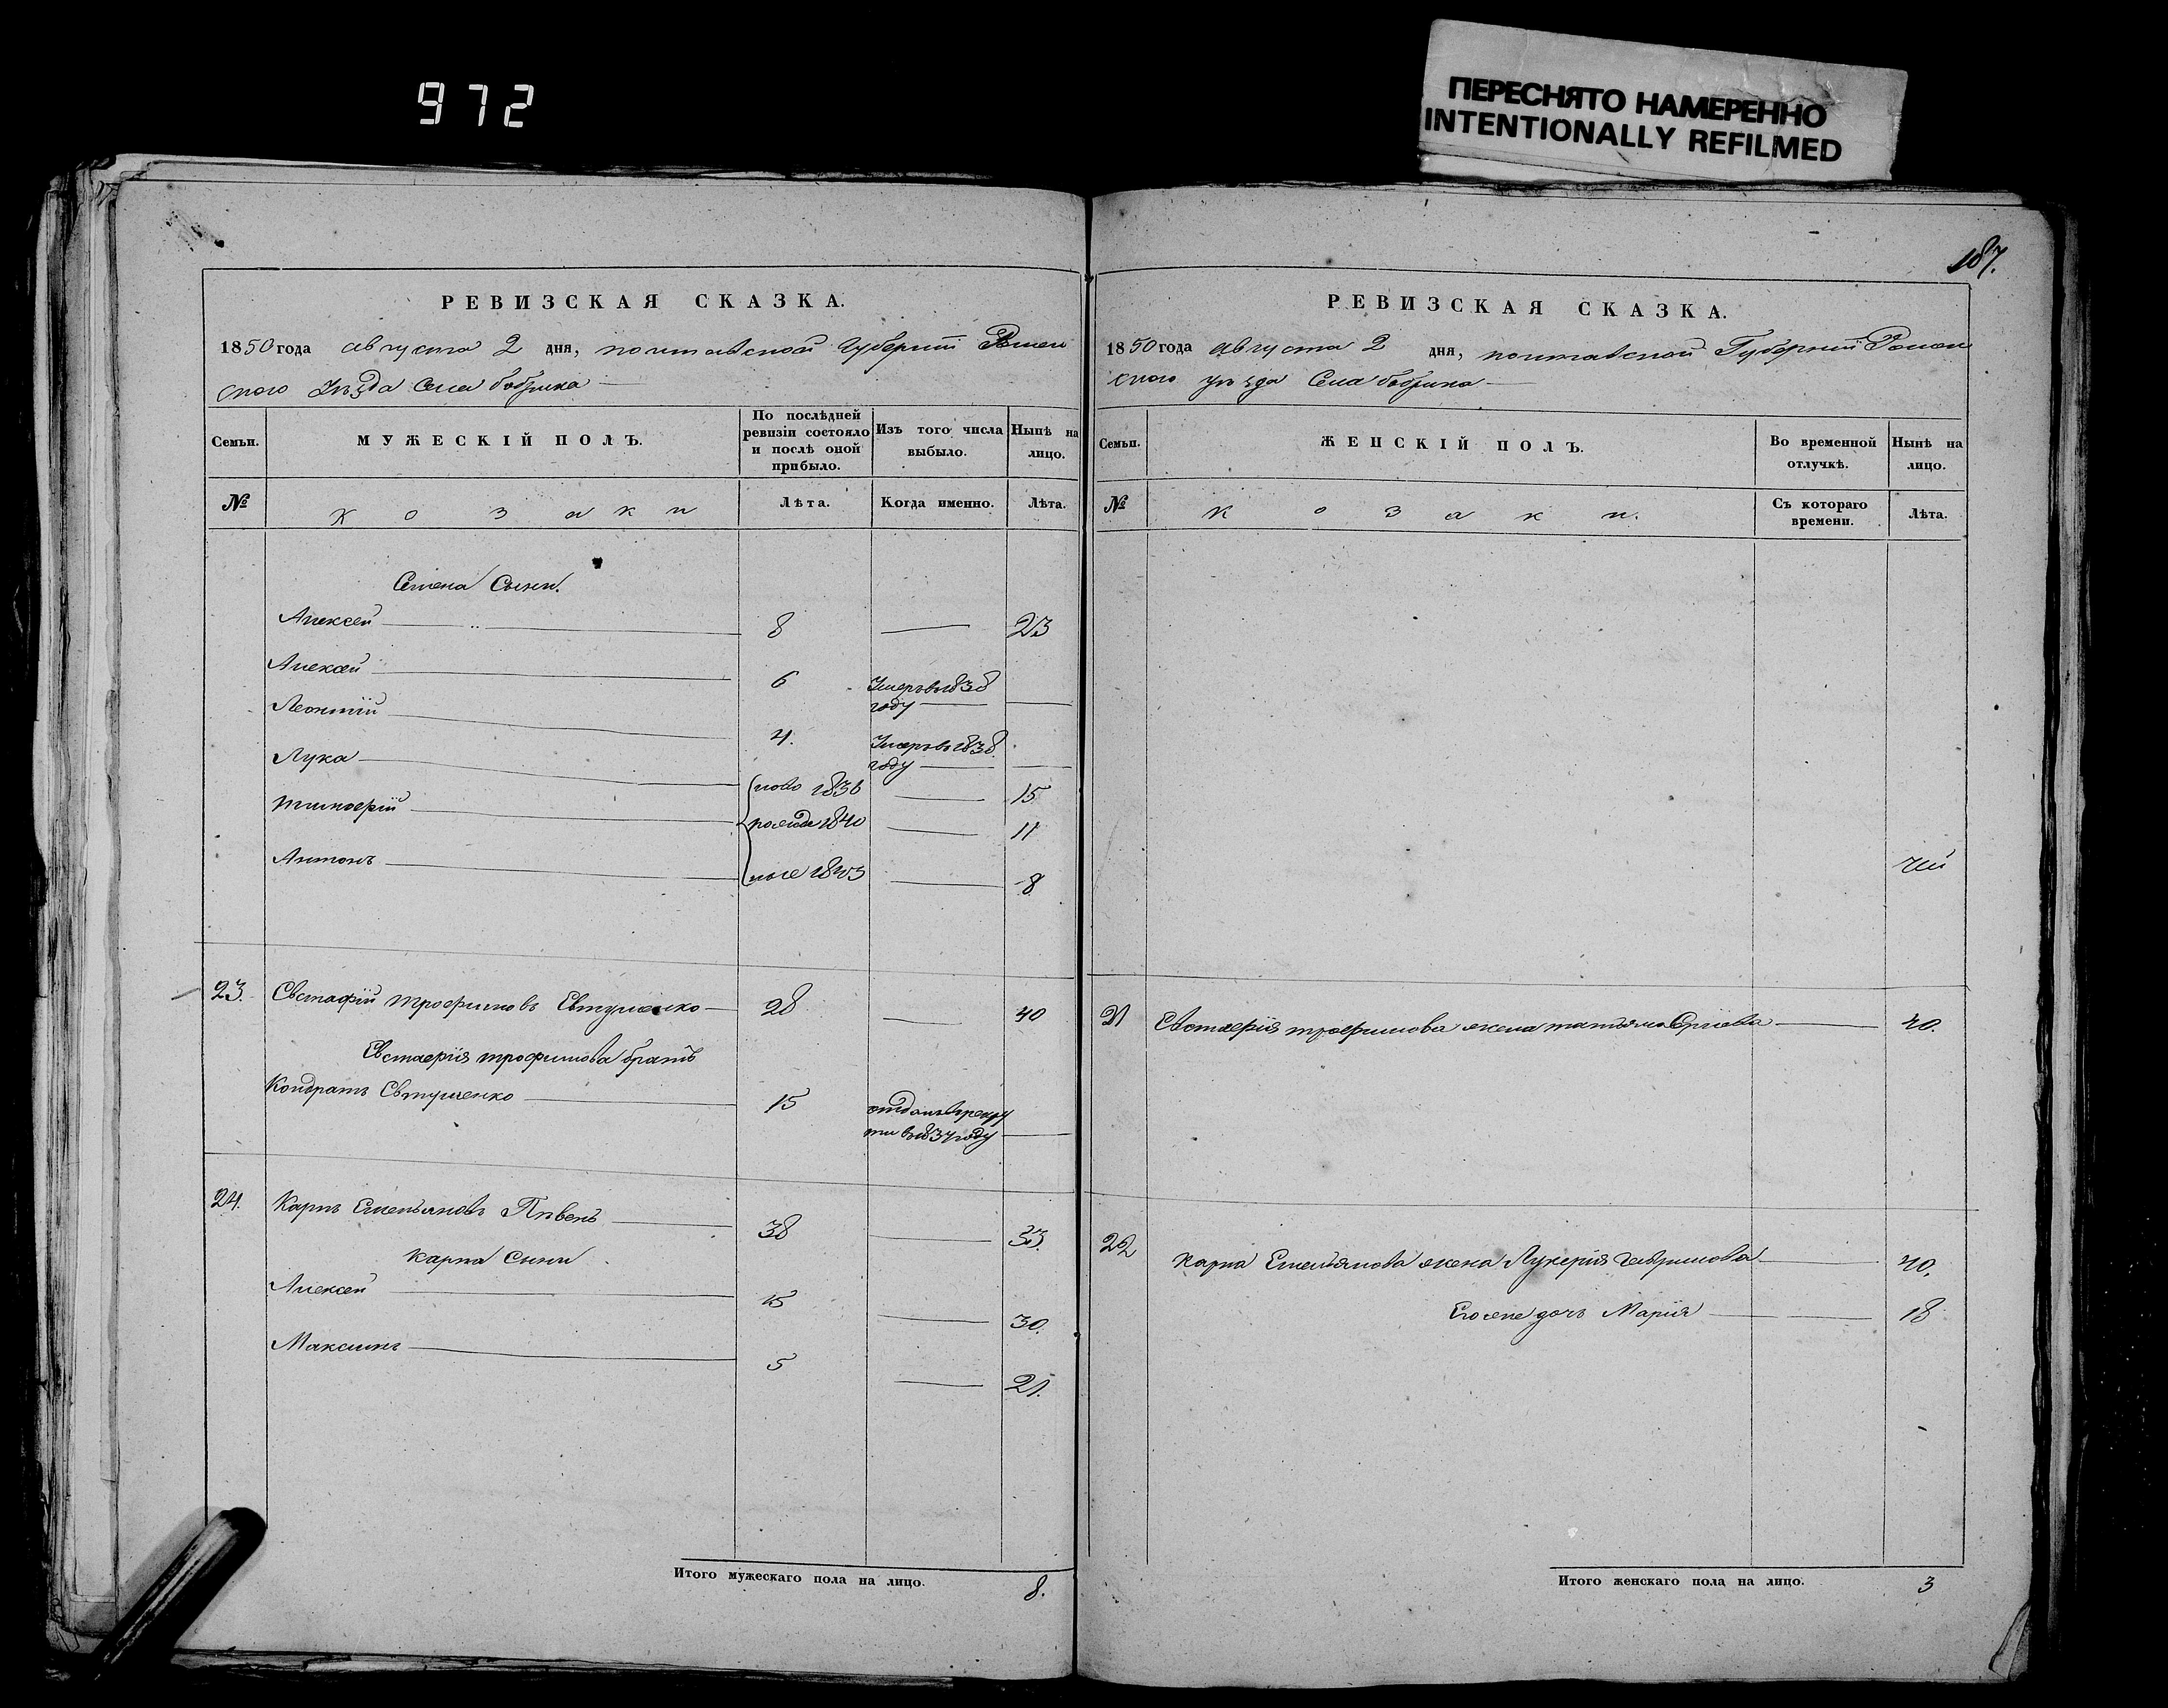 972
ПЕРЕСНЯТО НАМЕРЕННО
INTENTIONALLY REFILMED
187.
РЕВИЗСКАЯ СКАЗКА.
1850 года августа 2 дня, полтавской Губерніи Ромен
ского Уѣзда Села бобрика
Семьи.
МУЖЕСКІЙ ПОЛЪ.
По послѣдней ревизіи состояло и послѣ оной прибыло.
Изъ того числа выбыло.
Нынѣ на лицо.
№
козаки
Лѣта.
Когда именно.
Лѣта.
Семена Сыни.
Алексей 8 23
Алексей 6 Умеръ въ 1838
году
Леонтій 4. Умеръ въ 1838
году
Лука ново 1836 15
тимофій рожде 1840 11
Антонъ ные 1843 8
23. Євстафій трофимовъ Евтушенко 28 40
Евстафія трофимова братъ
Кондратъ Євтушенко 15 отданъ в рекру
ти въ 1834 году
24. Карпъ Емельяновъ Пѣвень 38 53.
Карпа Сыни
Алексей 15 30.
Максимъ 5 21.
Итого мужескаго пола на лицо. 8.
РЕВИЗСКАЯ СКАЗКА.
1850 года августа 2 дня, полтавской Губерніи Ромен
ского уѣзда Села бобрика
Семьи.
ЖЕНСКІЙ ПОЛЪ.
Во временной отлучкѣ.
Нынѣ на лицо.
№
козаки.
Съ котораго времени.
Лѣта.
21 Євстафія трофимова жена татьяна 40.
22 Карпа Емельянова жена Лукерія Гаврилова 40.
Его же дочь Марія 18
Итого женскаго пола на лицо. 3